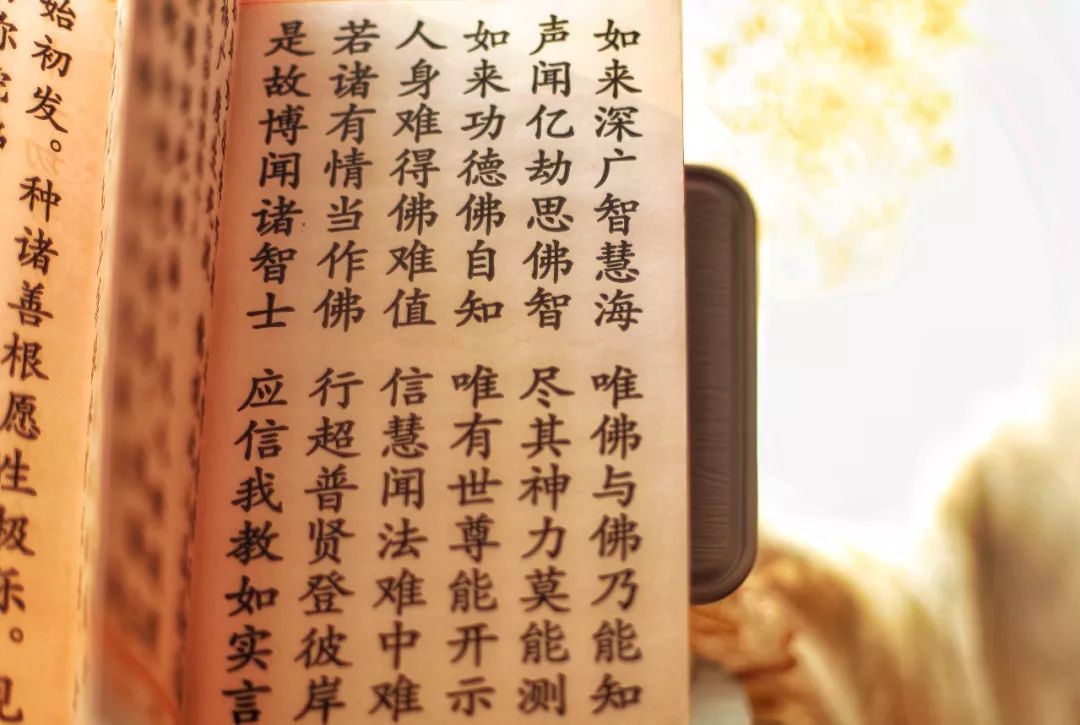 如来深广智慧海 唯佛与佛乃能知
声闻亿劫思佛智 尽其神力莫能测
如来功德佛自知 唯有世尊能开示
人身难得佛难值 信慧闻法难中难
若诸有情当作佛 行超普贤登彼岸
是故博闻诸智士 应信我教如实言
始初发。种诸善根愿生极乐。见